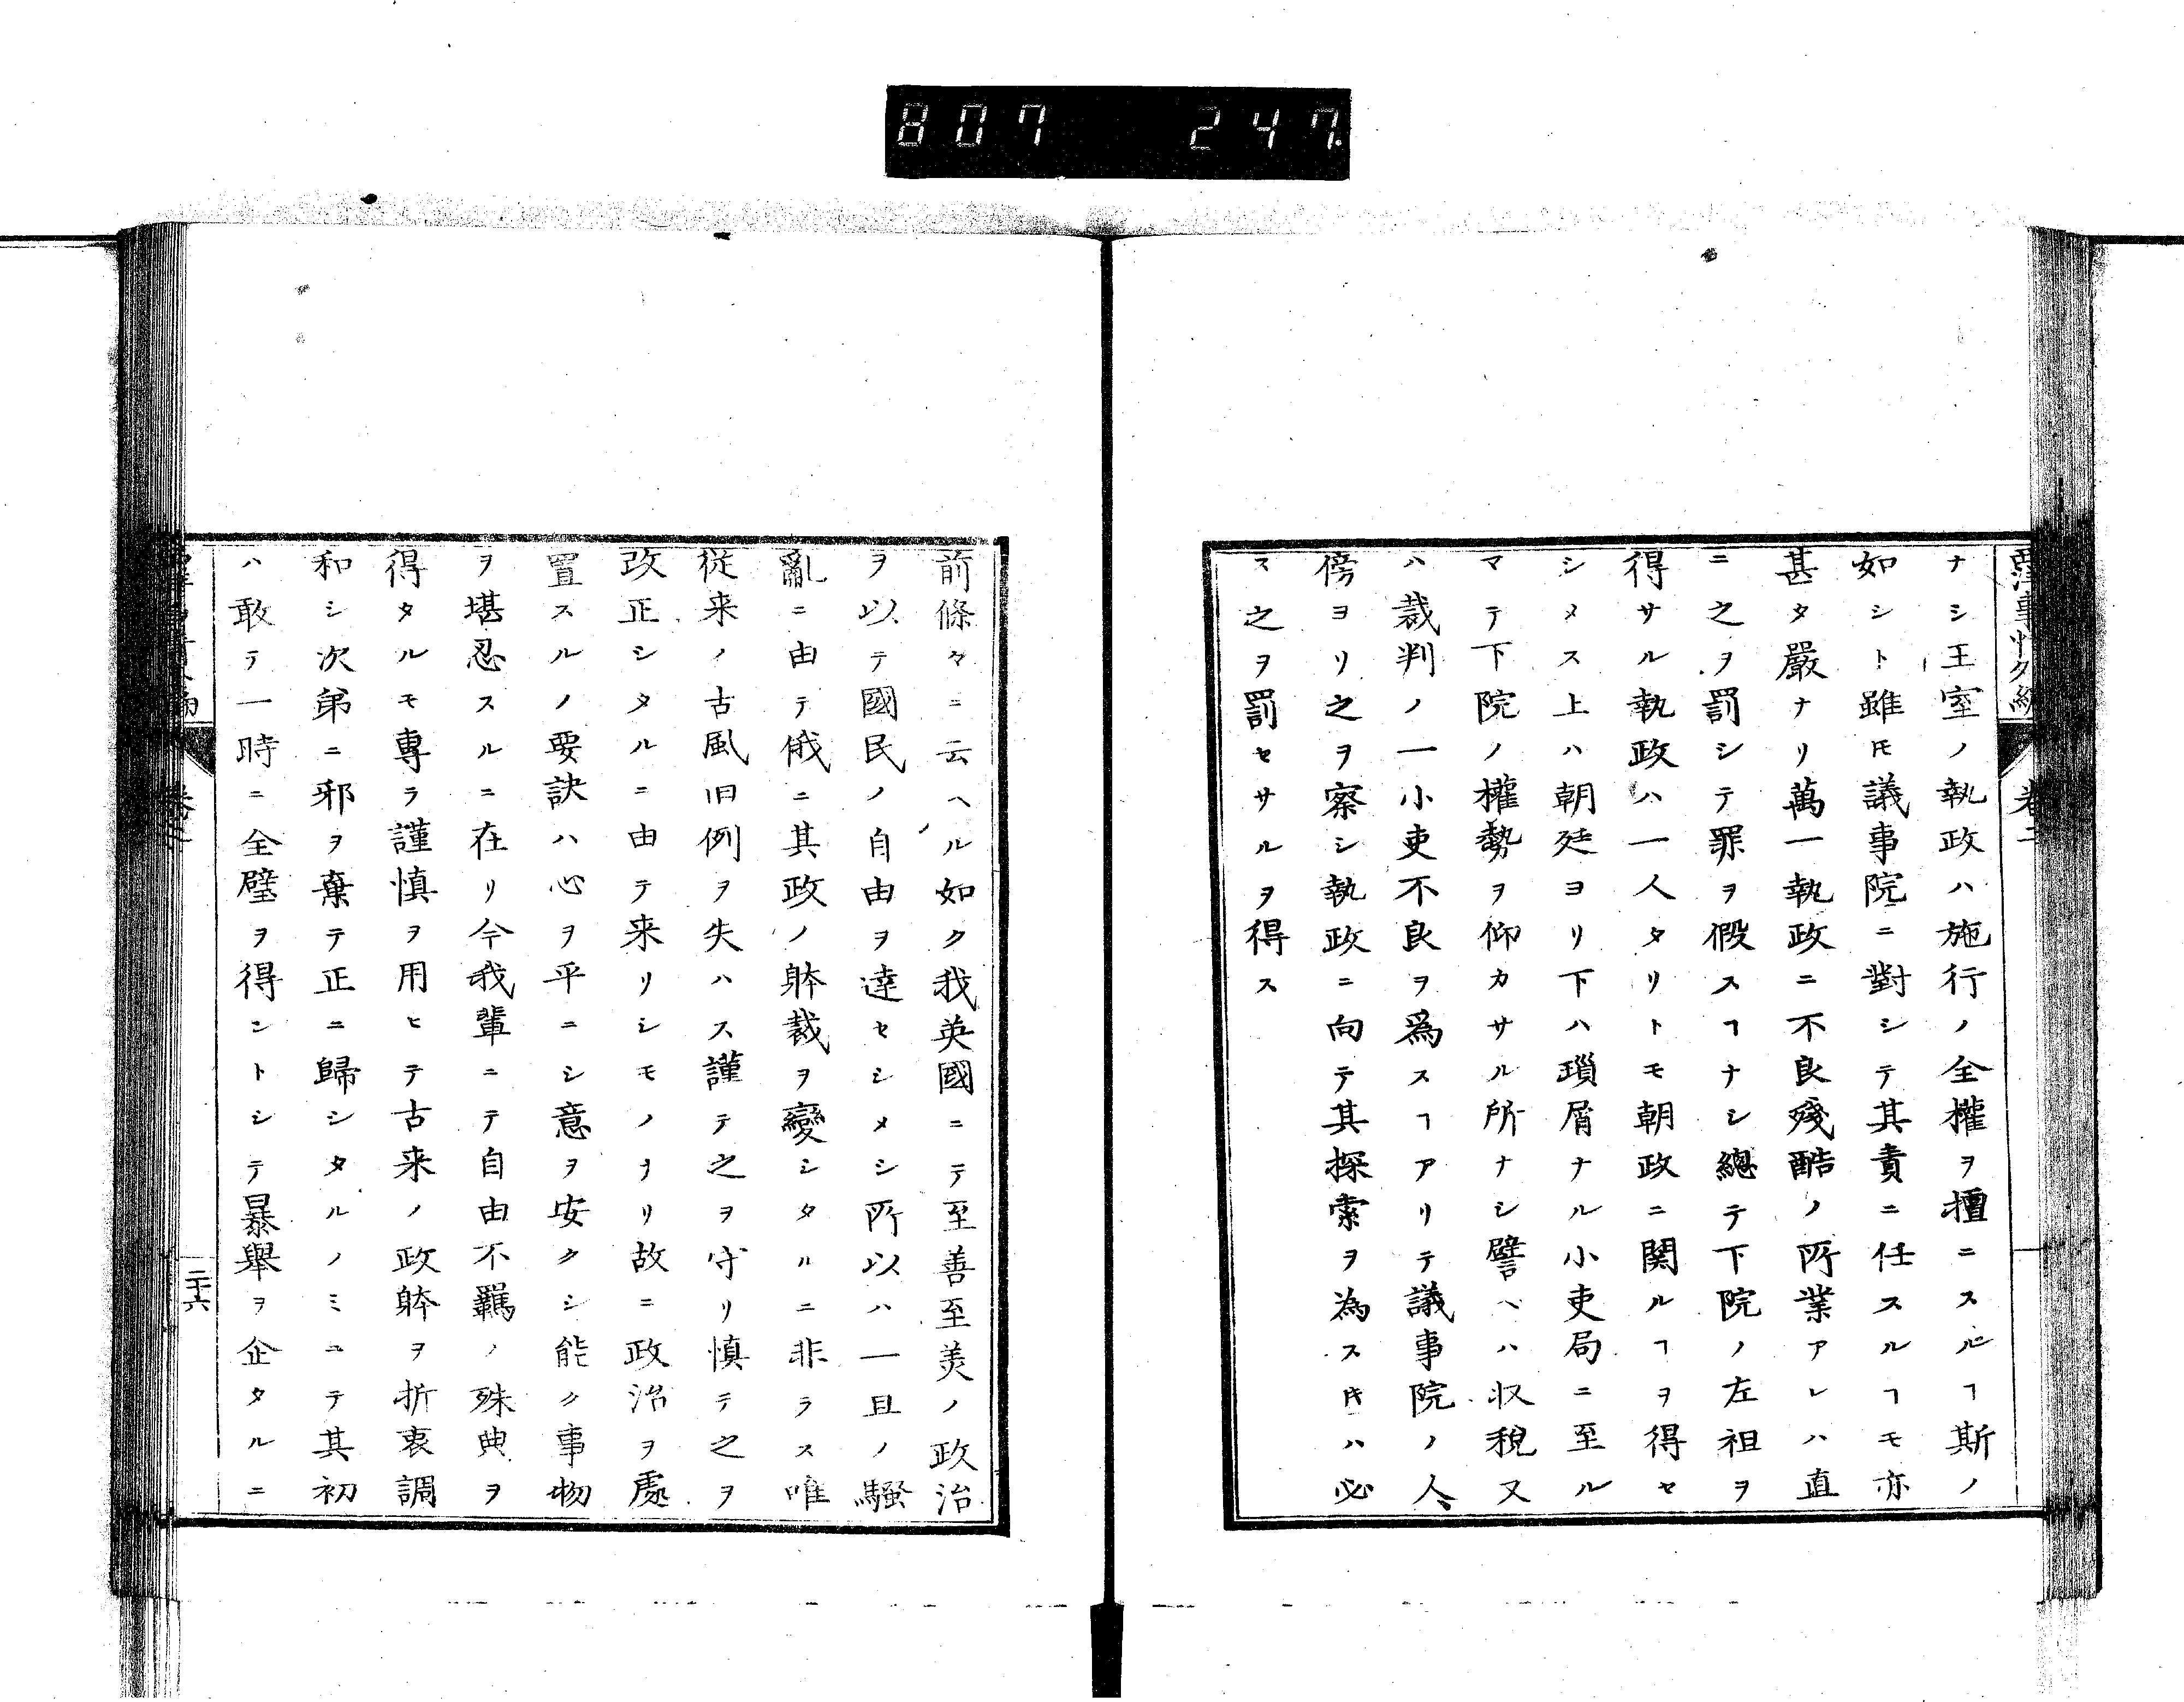 807 247
西洋事情外編 卷二
ナシ王室ノ執政ハ施行ノ全權ヲ擅ニスルヿ斯ノ
如シト雖𪜈議事院ニ對シテ其責ニ任スルヿモ亦
甚タ嚴ナリ萬一執政ニ不良殘酷ノ所業アレハ直
ニ之ヲ罰シテ罪ヲ假スヿナシ總テ下院ノ左袒ヲ
得サル執政ハ一人タリトモ朝政ニ関ルヿヲ得セ
シメス上ハ朝廷ヨリ下ハ瑣屑ナル小吏局ニ至ル
マテ下院ノ權勢ヲ仰カサル所ナシ譬ヘハ収稅又
ハ裁判ノ一小吏不良ヲ爲スヿアリテ議事院ノ人
傍ヨリ之ヲ察シ執政ニ向テ其探索ヲ為ス𪜈ハ必
ス之ヲ罰セサルヲ得ス
前條々ニ云ヘル如ク我英國ニテ至善至美ノ政治
ヲ以テ國民ノ自由ヲ達セシメシ所以ハ一旦ノ騷
亂ニ由テ俄ニ其政ノ躰裁ヲ變シタルニ非ラス唯
從来ノ古風旧例ヲ失ハス謹テ之ヲ守リ慎テ之ヲ
改正シタルニ由テ来リシモノナリ故ニ政治ヲ處
置スルノ要訣ハ心ヲ平ニシ意ヲ安クシ能ク事物
ヲ堪忍スルニ在リ今我輩ニテ自由不羈ノ殊典ヲ
得タルモ專ラ謹慎ヲ用ヒテ古来ノ政躰ヲ折衷調
和シ次第ニ邪ヲ棄テ正ニ歸シタルノミニテ其初
ハ敢テ一時ニ全璧ヲ得ントシテ暴舉ヲ企タルニ
二十六